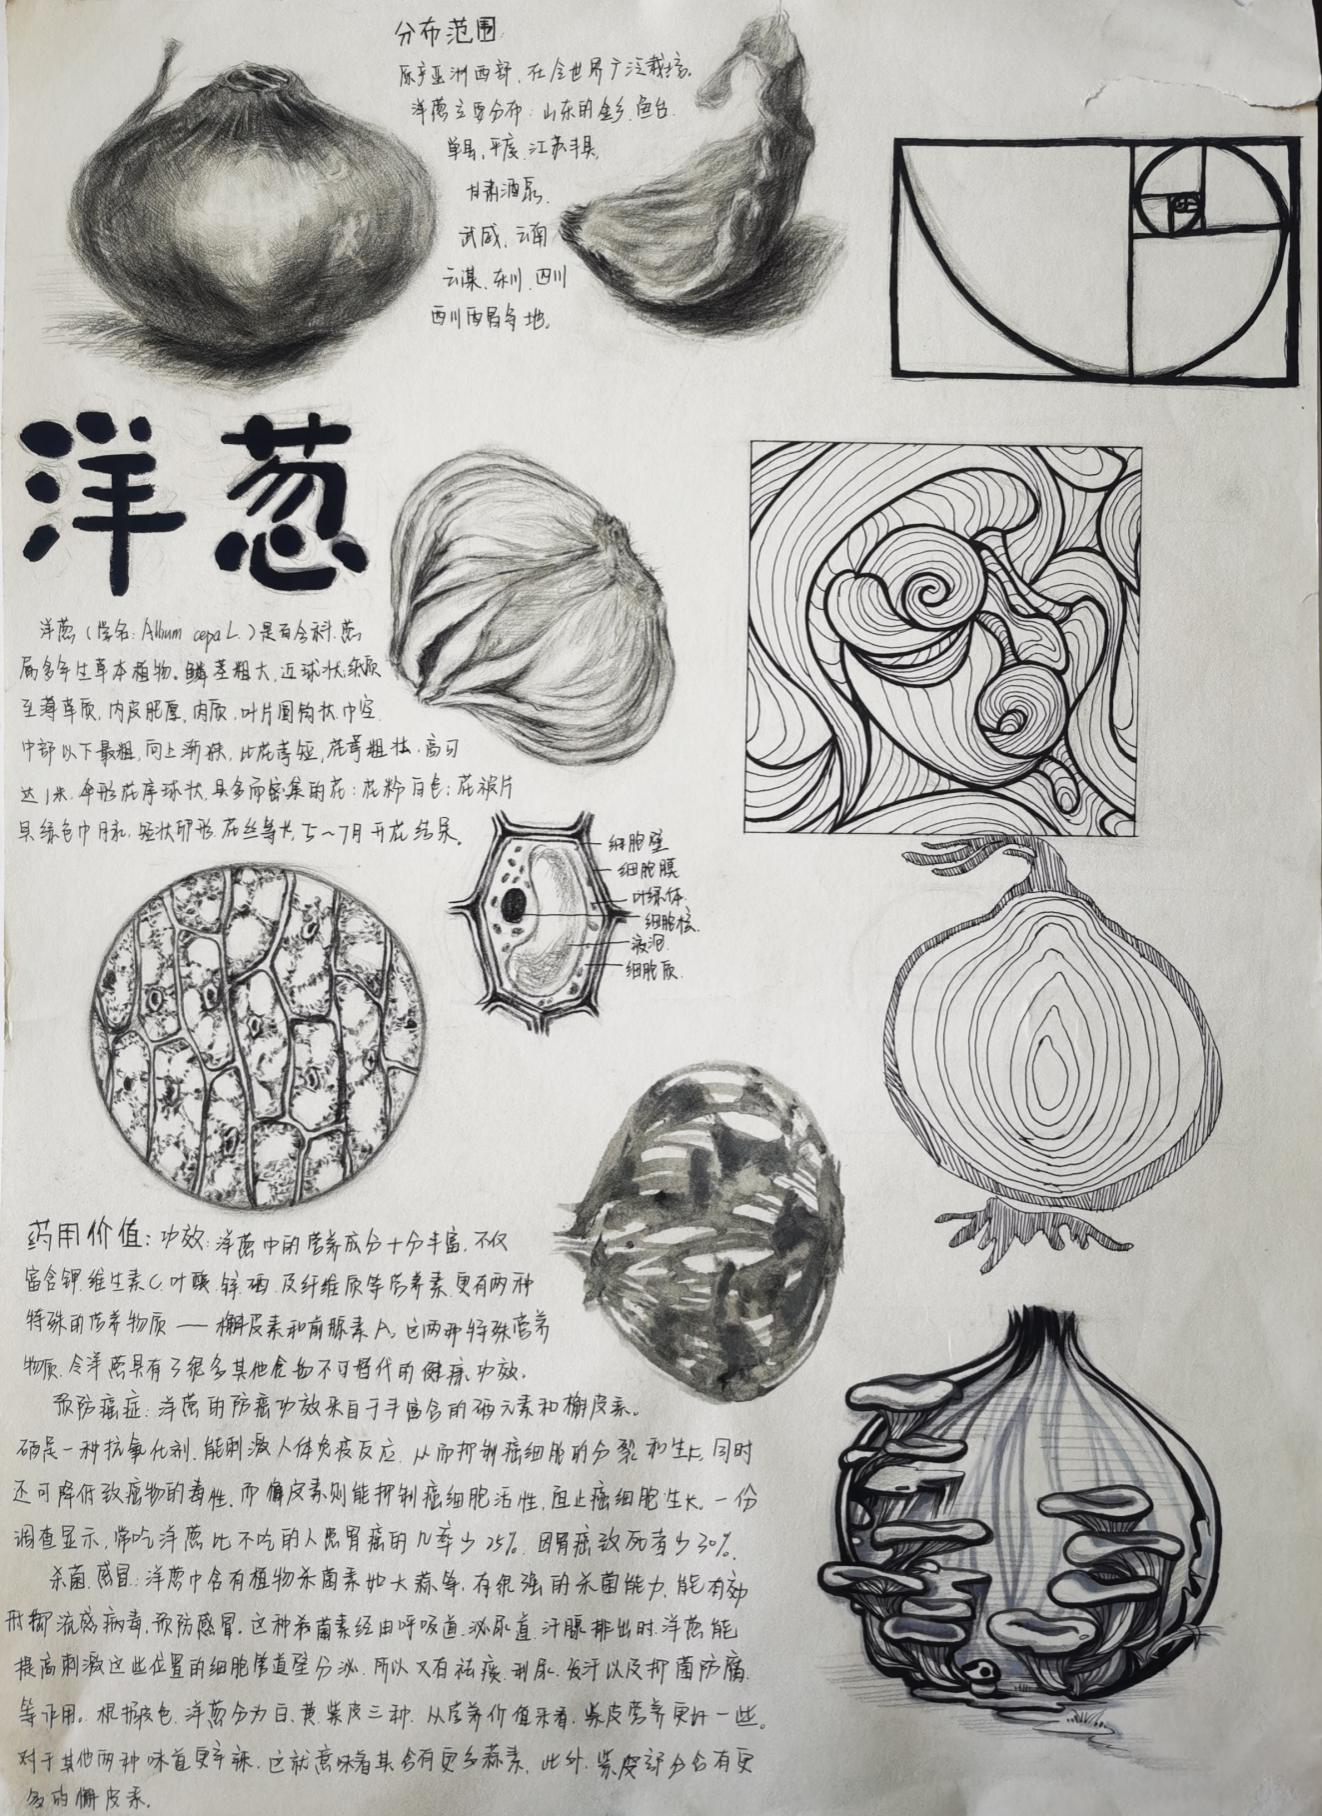 分布范围
原产亚洲西部，在全世界广泛栽培。
洋葱主要分布：山东的金乡、鱼台、
单县，平度，江苏丰县，
甘肃酒泉、
武威、云南
云谋、东川、四川
西川西昌等地。
洋葱
洋葱（学名：Allium cepa L.）是百合科、葱
属多年生草本植物。鳞茎粗大，近球状，纸质
至薄革质，内皮肥厚，肉质，叶片圆筒状中空
中部以下最粗，向上渐狭，比花葶短，花葶粗壮，高可
达1米，伞形花序球状，具多而密集的花；花粉白色；花被片
具绿色中脉，矩状卵形，花丝等长，5～7月开花结果。
细胞壁
细胞膜
叶绿体
细胞核
液泡
细胞质
药用价值：功效：洋葱中的营养成分十分丰富，不仅
富含钾、维生素C、叶酸、锌、硒、及纤维质等营养素，更有两种
特殊的营养物质——槲皮素和前腺素A。这两种特殊营养
物质，令洋葱具有了很多其他食物不可替代的健康功效。
预防癌症：洋葱的防癌功效来自于丰富含的硒元素和槲皮素。
硒是一种抗氧化剂，能刺激人体免疫反应，从而抑制癌细胞的分裂和生长，同时
还可降低致癌物的毒性，而槲皮素则能抑制癌细胞活性，阻止癌细胞生长。一份
调查显示，常吃洋葱比不吃的人患胃癌的几率少25%，因胃癌致死者少30%。
杀菌、感冒：洋葱中含有植物杀菌素如大蒜等，有很强的杀菌能力，能有效
抑御流感病毒，预防感冒。这种杀菌素经由呼吸道、泌尿道、汗腺排出时，洋葱能
提高刺激这些位置的细胞管道壁分泌，所以又有祛痰、利尿、发汗以及抑菌防腐
等作用。根据皮色，洋葱分为白、黄、紫皮三种，从营养价值来看，紫皮营养更好一些。
对于其他两种味道更辛辣，这就意味着其含有更多蒜素，此外，紫皮部分含有更
多的槲皮素。